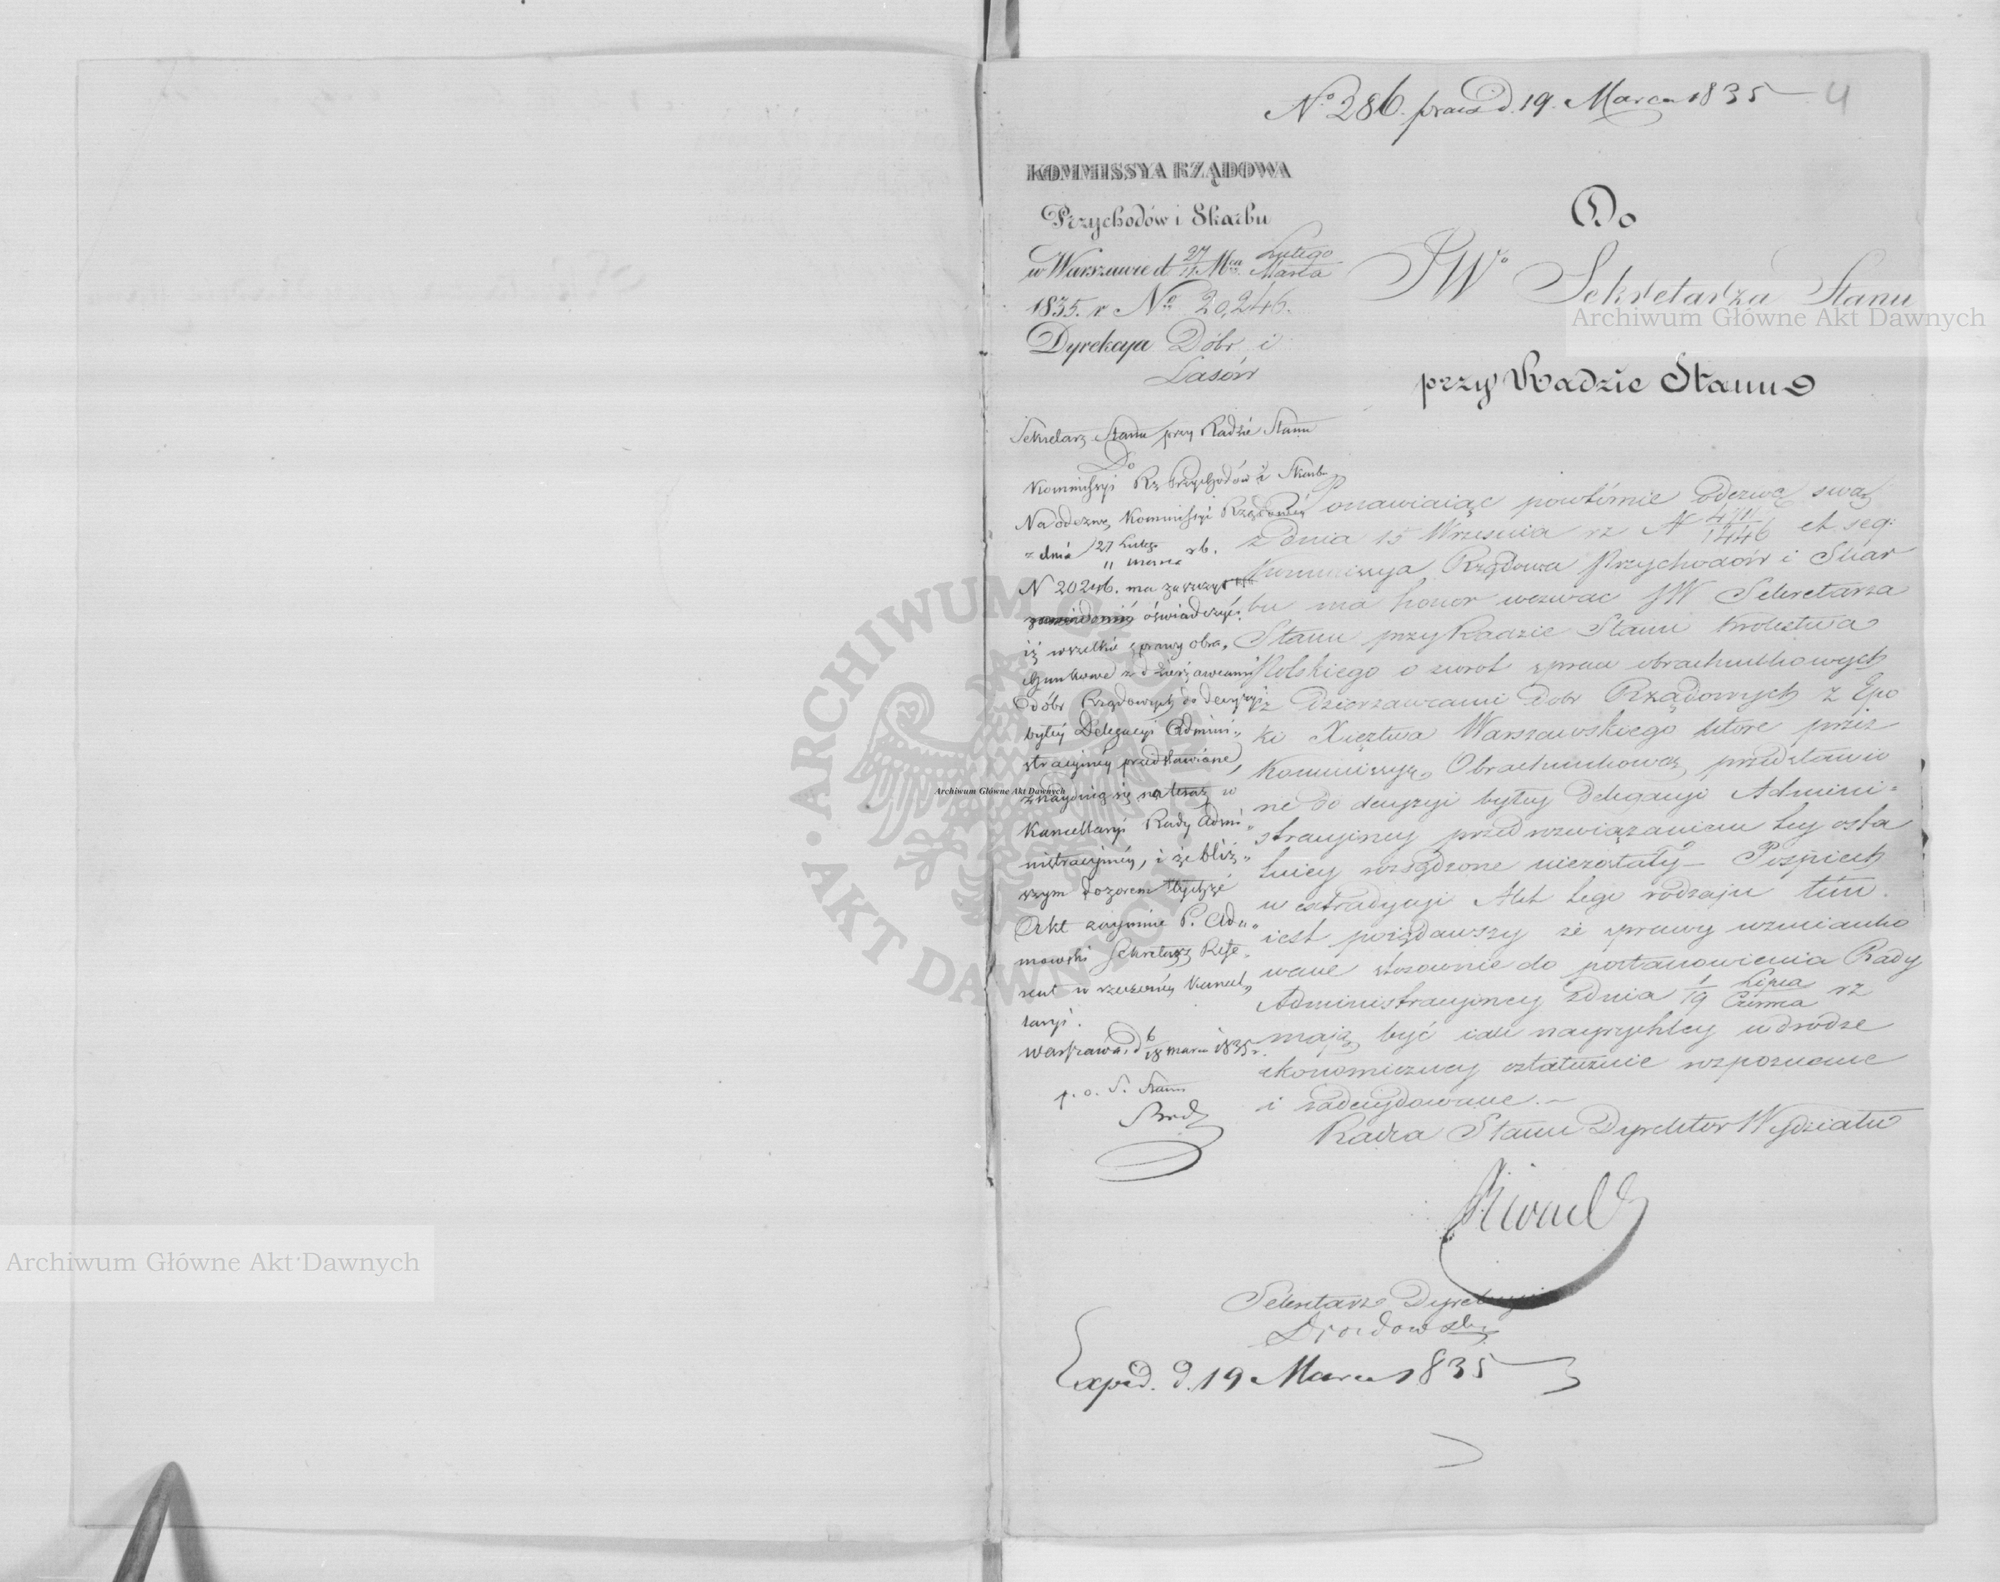 No 286. praes d. 19. Marca 1835
4
KOMMISSYA RZĄDOWA
Przychodów i Skarbu
w Warszawie d 27/11 Mca Lutego/Marca
1835. r No 20,246.
Dyrekcya Dóbr i
Lasów
Do
JWo Sekretarza Stanu
przy Radzie Stanu
Sekretarz Stanu przy Radzie Stanu
Do
Kommissyi Rz Przychodów i Skarbu
Na odezwę Kommissyi Rządowey
z dnia 27 Lutego/11 marca rb.
N 20246. ma zaszczyt
zawiadomić oświadczyć:
iż wszelkie sprawy obra„
chunkowe z dzierżawcami
dóbr Rządowych do decyzyi
byłéy Delegacyi Admini„
stracyinéy przedstawione,
znayduią się na teraz w
Kancellaryi Rady Admi„
nistracyinéy, i że bliż„
szym dozorem tychże
Akt zaymuie P. Ad„
mowski Sekretarz Refe„
rent w rzeczonéy Kancel„
laryi.
Warszawa, d 6/18 marca 1835 r.
p. o. S. Stanu
Ponawiaiąc powtórnie odezwę swą
z dnia 15 Września rz N 1446 et seq:
Kommissya Rządowa Przychodów i Skar
bu ma honor wezwać JW Sekretarza
Stanu przy Radzie Stanu Królestwa
Polskiego o zwrot spraw obrachunkowych
z Dzierzawcami Dobr Rządowych z Epo
ki Xięztwa Warszawskiego które przez
Kommissyą Obrachunkową przedstawio
ne do decyzyi byłey Delegacyi Admini=
stracyiney przed rozwiązaniem tey osta
tniey rozsądzone niezostały – Pośpiech
w extradycyi Akt tego rodzaju tém
iest pożądańszy że sprawy wzmianko
wane stosownie do postanowienia Rady
Administracyiney z dnia 1/19 Lipca/Czerwca rz
mają być iak nayrychley w drodze
ekonomiczney ostatecznie rozpoznane
i zadecydowane. –
Radca Stanu Dyrektor Wydziału
Sekretarz Dyrekcyi
Drozdowski
Exped. d. 19 Marca 1835
Archiwum Główne Akt Dawnych
Archiwum Główne Akt Dawnych
Archiwum Główne Akt Dawnych
ARCHIWUM GŁÓWNE AKT DAWNYCH